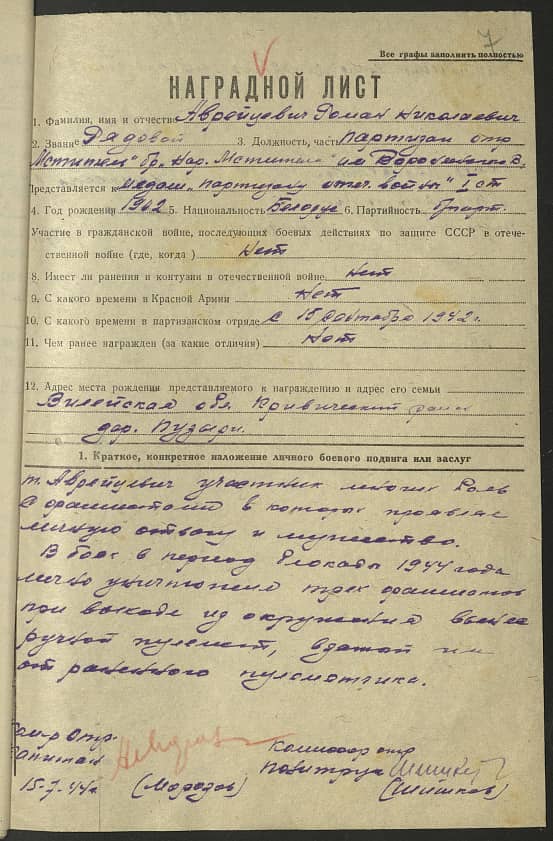 7
Все графы заполнить полностью
НАГРАДНОЙ ЛИСТ
1. Фамилия, имя и отчество Аврейцевич Роман Николаевич
2. Звание Рядовой 3. Должность, часть Партизан отр
Мститель" бр. Нар. Мстители" им Воронянского В.
Представляется к медали "партизану отеч. войны" I ст
4. Год рождения 1902 5. Национальность Белорус 6. Партийность б/парт.
Участие в гражданской войне, последующих боевых действиях по защите СССР в отече-
ственной войне (где, когда) Нет
8. Имеет ли ранения и контузии в отечественной войне Нет
9. С какого времени в Красной Армии Нет
10. С какого времени в партизанском отряде С 15 Сентября 1942 г.
11. Чем ранее награжден (за какие отличия) Нет
12. Адрес места рождения представляемого к награждению и адрес его семьи
Вилейская обл. Кривический район
дер. Пузыри.
1. Краткое, конкретное изложение личного боевого подвига или заслуг
т. Аврейцевич участник многих боев
с фашистами в которых проявлял
личную отвагу и мужество.
В боях в период блокады 1944 года
лично уничтожил трех фашистов
при выходе из окружения вынес
ручной пулемет, взятой им
от раненного пулеметчика.
Ком-р Отр. Комиссар отр
Капитан Политрук
15-7-44г (Морозов) (Шишков)